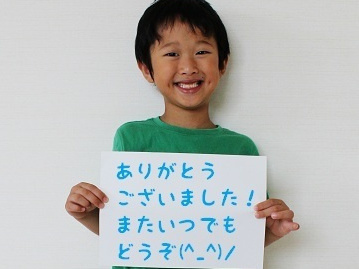 ありがとう
ございました!
またいつでも
どうぞ(^_^)/